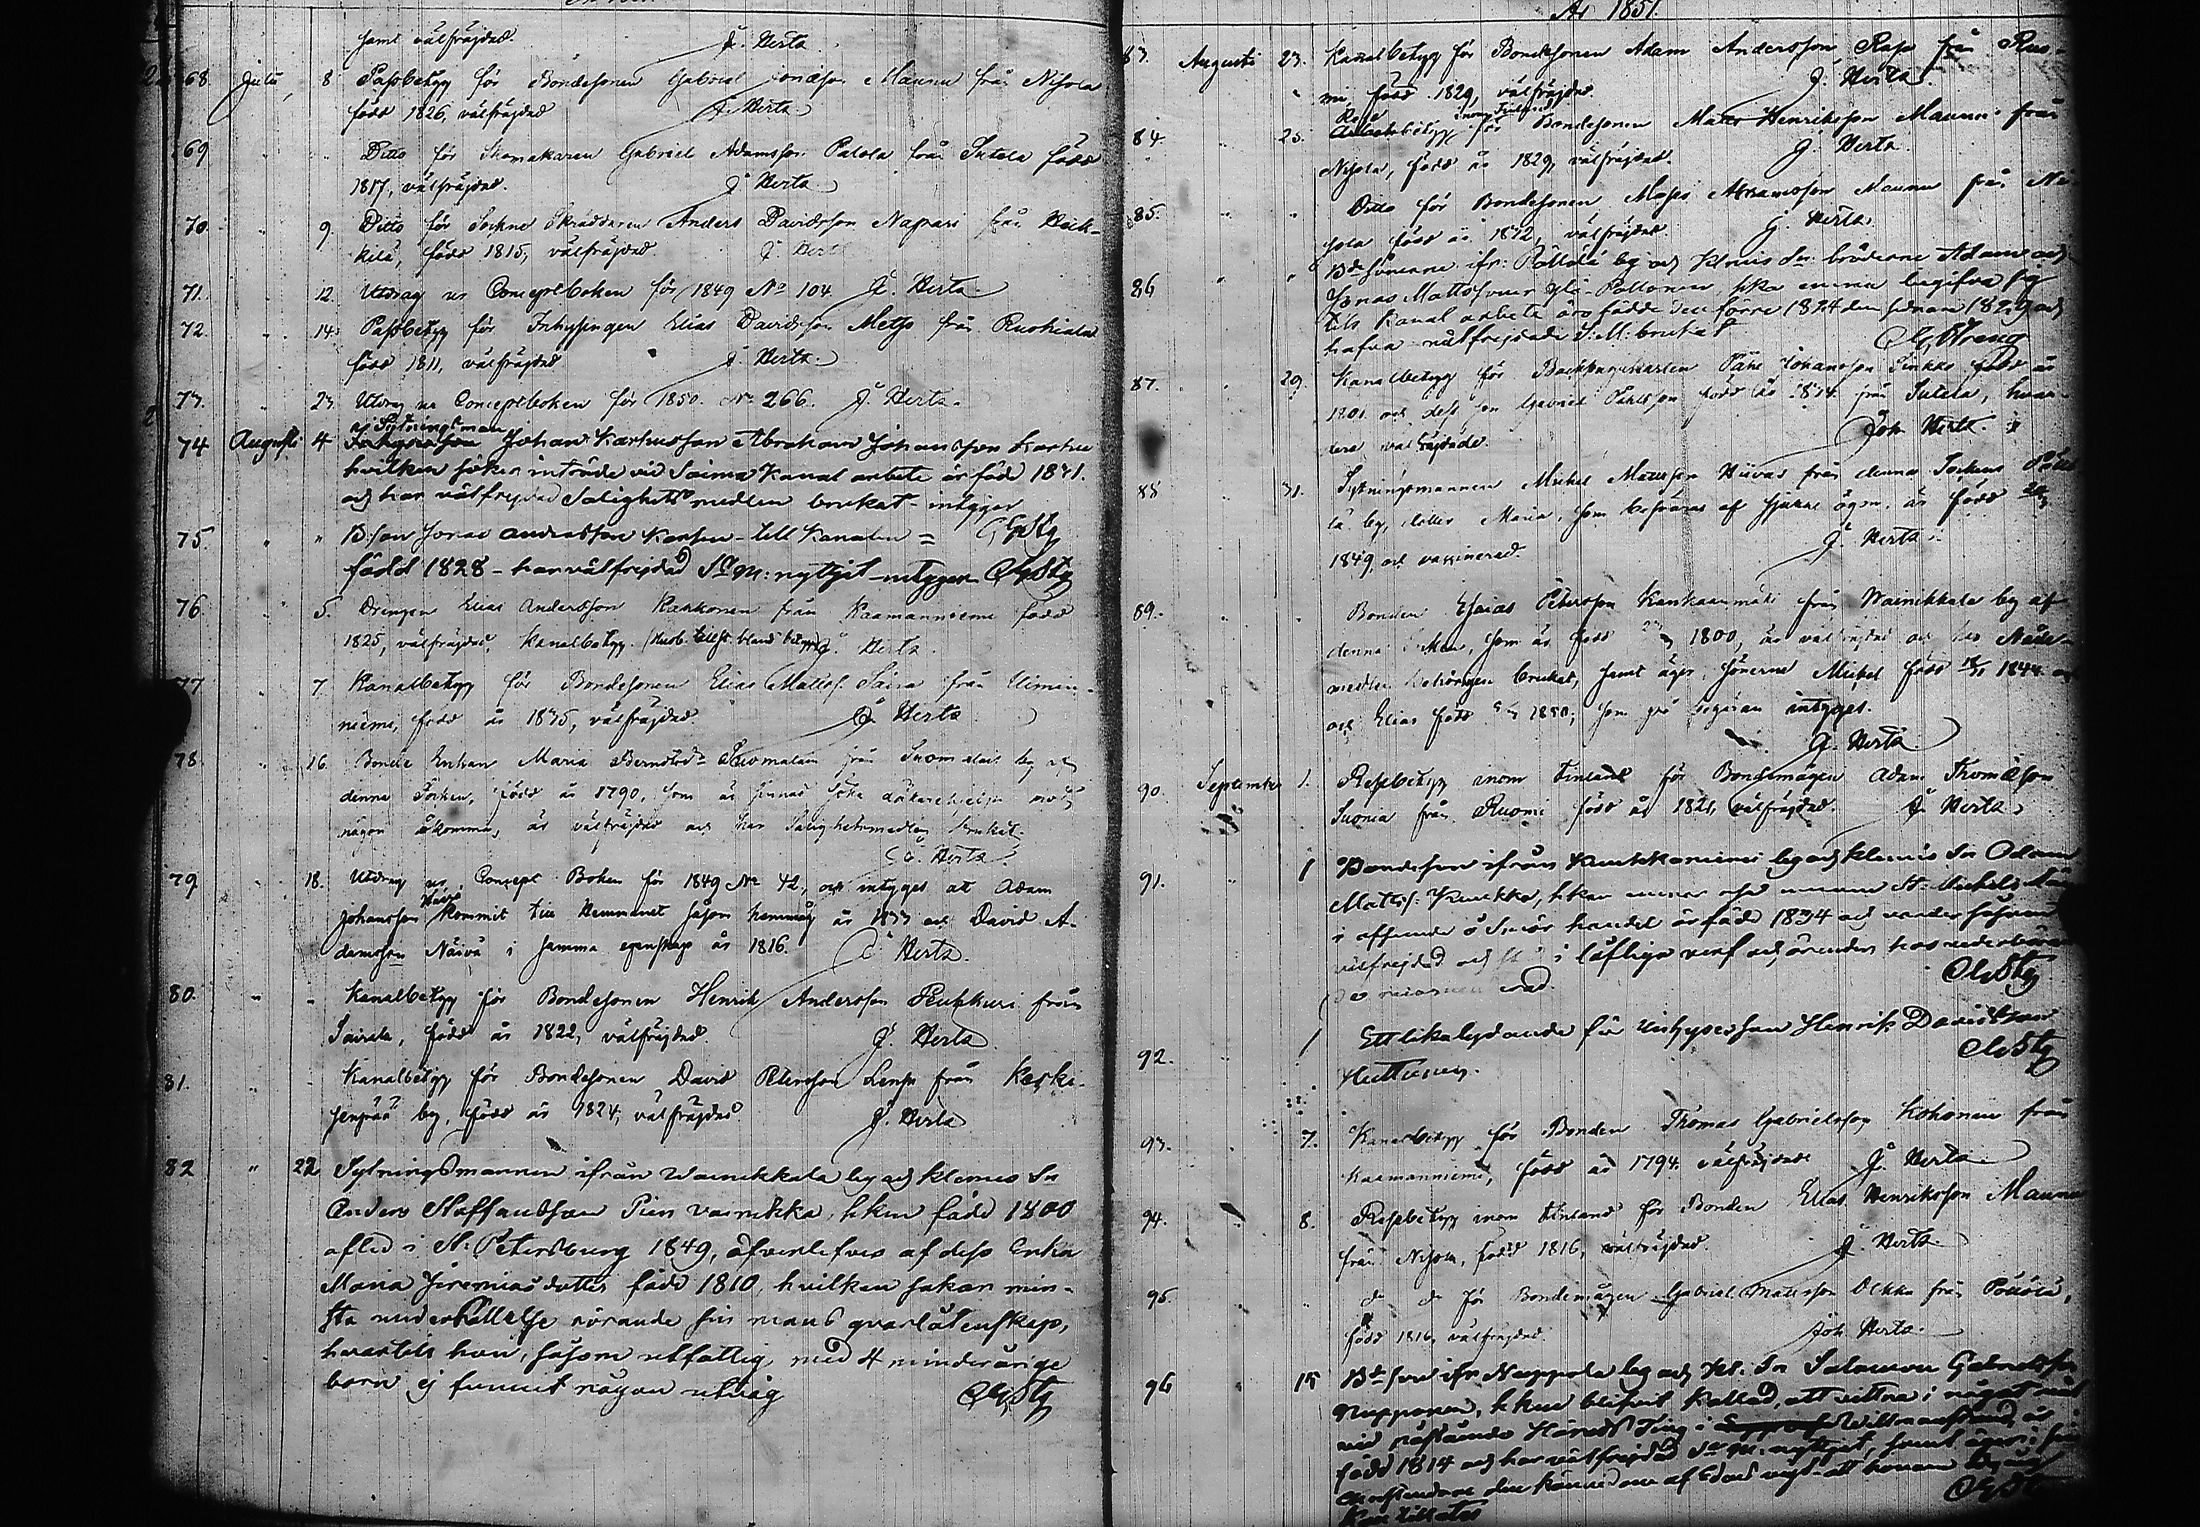 samt välfräjdad. J. Herta.
68. Julii 8 Passbetyg för Bondesonen Gabriel Jonasson Maunu från Nisola
född 1826, välfräjdad J. Herta
69 Ditto för Skomakaren Gabriel Adamsson Palola från Sutela född
1817, välfräjdad. J. Herta
70. 9. Ditto för Sockne Skräddaren Anders Davidsson Napari från Heik-
kilä, född 1815, välfräjdad. J. Herta
71. 12. Utdrag ur Conceptboken för 1849 No 104 J. Herta
72. 14. Passbetyg för Inhysingen Elias Davidsson Metso från Ruohiala
född 1811, välfräjdad J. Herta.
73. 23. Utdrag ur Conceptboken för 1850. No 266. J. Herta.
Sytningsman
74 Augusti 4 Johan Karhusson Abraham Johansson Karhu
hvilken söker inträde vid Saima Kanal arbete är född 1831.
och har välfrejdad Salighets medlen brukat - intygar
75. " B. son Jonas Andersson Karhu - till Kanalen =
född 1828 - har välfrejdad S. M: nyttjat - intygar
76. 5. Drängen Elias Andersson Kakkonen från Kaamanniemi född
1825, välfräjdad, Kanalbetyg. J. Herta.
77 7 Kanalbetyg för Bondesonen Elias Mattss. Saira från Uimin-
niemi, född år 1835, välfräjdad J. Herta
78 16 Bonde Enkan Maria Berntsd:r Suomalain från Suom by af
denna Socken, född år 1790, som är sinnad söka mot
någon åkomma, är välfräjdad och har Salighetsmedlen brukat.
J. Herta
79 18. Utdrag ur Concept Boken för 1849 No 42, och intyges at Adam
Johansson kommit till Hemmanet såsom hemmåg år 1833 och David A-
damsson Näivä i samma egenskap år 1816. J. Herta.
80. " " Kanalbetyg för Bondesonen Henrik Andersson Puhkuri från
Sairala, född år 1822, välfräjdad. J. Herta
81. " Kanalbetyg för Bondesonen David Petersson Lensu från Keski-
senpää by, född år 1824, välfräjdad J. Herta
82 " 22 Sytningsmannen ifrån Wainikkala by och klemis Sn
Anders Staffansson Pien vainikka, hken född 1800
afled i St. Petersburg 1849, öfverlefves af dess Enka
Maria Jeremiasdotter född 1810, hvilken saknar min-
sta underrättelse rörande sin mans qvarlåtenskap,
hvartill hon, såsom utfattig med 4 minderårige
barn ej funnit någon utväg
År 1851.
83. Augusti 23. Kanalbetyg för Bondesonen Adam Andersson Rapo från Ruo-
mi, född 1829, välfräjdad. J. Herta
Rese inom Finland
84. 25. betyg för Bondesonen Matts Henriksson Maunu från
Nisola, född år 1829, välfräjdad. J. Herta.
85. " " Ditto för Bondesonen Moses Abramsson Maunu från Ni-
sola född år 1832, välfräjdad. J. Herta.
86 " " Bdesönerne ifr: Pällälä by och Klemis Sn: bröderne Adam och
Jonas Mattssöner Yli-Pallonen, hka ärna begifva sig
till Kanal arbete äro födde den förre 1824 den sednare 1829 och
hafva välfrejdade S: M: brukat
87. 29. Kanalbetyg för Backstugukarlen Påhl Johansson Sinkko född år
1801 och dess son Gabriel Påhlsson född år 1834 från Sutela, hvar-
dera välfräjdade. Joh. Herta.
88 31. Sytningsmannen Mickel Mattsson Hiivas från denna Sockens
by, dotter Maria, som besväras af sjukne ögon, är född
1849 och vaccinerad. J. Herta.
89. Bonden Esaias Petersson Kankaanmäki från Wainikkala by af
denna Socken, som är född 1800, är välfräjdad och har Nåde-
medlen behörigen brukat, samt äger sönerne Mickel född 1844 och
och Elias född 1850; som på begäran intyges.
J. Herta.
90. September 1. Resebetyg inom Finland för Bondemågen Adam Thomasson
Suonia från Ruomi född år 1821, välfräjdad. J. Herta.
91. " 1 Bondeson ifrån by och klemis Sn Adam
Mattss: Kuukka, hken ärnar resa St. Michels Län
i affseende å Smör handel är född 1834 och vandrar såsom
välfrejdad och i löflige värf och ärenden
92. " 1 Ett likalydande för Inhysesson Henrik Davidsson
Huttunen.
93. 7. Kanalbetyg för Bonden Thomas Gabrielsson Kohonen från
Kaamanniemi, född år 1794 välfräjdad J. Herta.
94. 8. Resebetyg inom Finland för Bonden Elias Henriksson Maunu
från Nisola, född 1816, välfräjdad. J. Herta
95. " d:o d:o för Bondemågen Gabriel Mattsson Olkka från Pällälä,
född 1816, välfräjdad. Joh. Herta.
96 15 Bdeson ifr. Nuppola by och Kl. Sn Salomon Gabrielsson
Nupponen, hken blifvit kallad, att vittna i något mål
vid nästående Härads Ting i Willmanstrand är
född 1814 och har välfrejdad S. M. nyttjat, samt äger i sin
christendom den kännedom af Eded vigt att honom
kan tillåtas